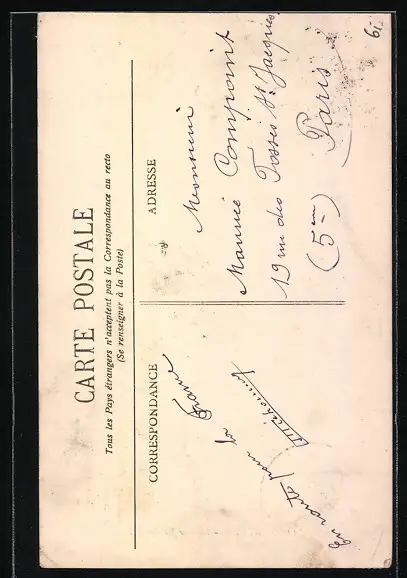 CARTE POSTALE
Tous les Pays étrangers n'acceptent pas la Correspondance au recto
(Se renseigner à la Poste)
CORRESPONDANCE
En route pour la
France
ADRESSE
Monsieur
Maurice Compoint
19 rue des Fossés St Jacques
(5em)
Paris
61